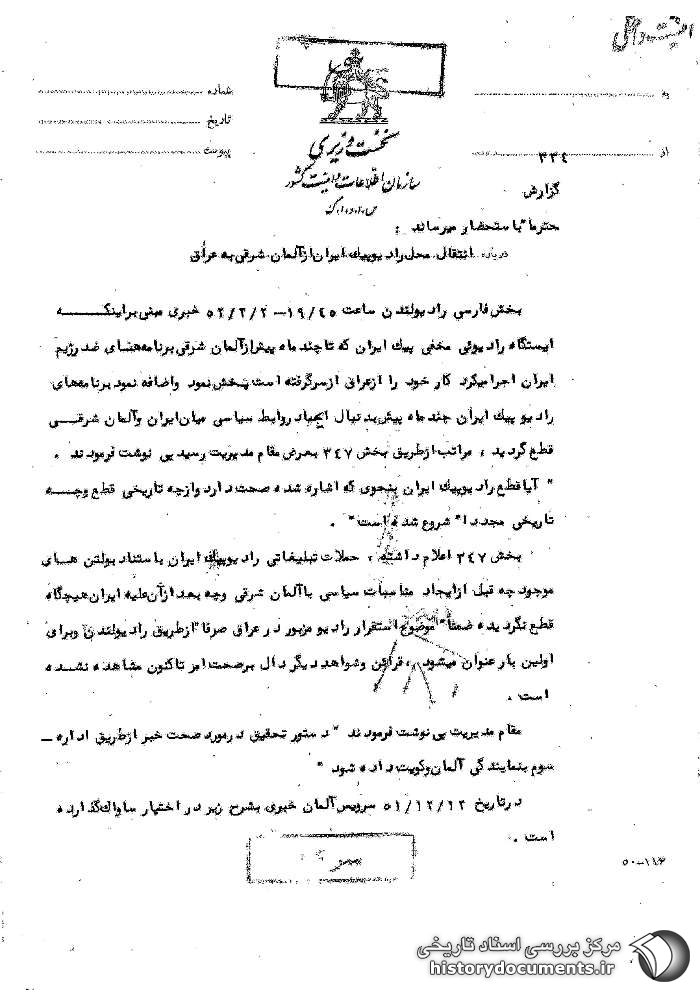 امنیت داخلی
به
شماره
تاریخ
از ۳۳٤
پیوست
نخست وزیری
سازمان اطلاعات و امنیت کشور
س.ا.و.ا.ک
گزارش
محترما" باستحضار میرساند :
درباره انتقال محل رادیو پیک ایران از آلمان شرقی به عراق
بخش فارسی رادیو لندن ساعت ۱۹/٤٥ – ۵۲/۲/۲ خبری مبنی براینکه
ایستگاه رادیوئی مخفی پیک ایران که تا چند ماه پیش از آلمان شرقی برنامه های ضد رژیم
ایران اجرا میکرد کار خود را از عراق از سر گرفته است پخش نمود و اضافه نمود برنامه های
رادیو پیک ایران چند ماه پیش بدنبال ایجاد روابط سیاسی میان ایران و آلمان شرقی
قطع گردید ، مراتب از طریق بخش ۳٤۷ بعرض مقام مدیریت رسید پی نوشت فرمودند .
" آیا قطع رادیو پیک ایران بنحوی که اشاره شده صحت دارد و از چه تاریخی قطع و چه
تاریخی مجددا" شروع شده است" .
بخش ۳٤۷ اعلام داشته ، حملات تبلیغاتی رادیو پیک ایران با ستناد بولتن های
موجود چه قبل از ایجاد مناسبات سیاسی با آلمان شرقی و چه بعد از آن علیه ایران هیچگاه
قطع نگردیده ضمنا" موضوع استقرار رادیو مزبور در عراق صرفا" از طریق رادیو لندن و برای
اولین بار عنوان میشود ، قرائن و شواهد دیگر دال بر صحت امر تاکنون مشاهده نشده
است .
مقام مدیریت پی نوشت فرمودند " دستور تحقیق در مورد صحت خبر از طریق اداره –
سوم بنمایندگی آلمان و کویت داده شود "
در تاریخ ۵۱/۱۲/۱۲ سرویس آلمان خبری بشرح زیر در اختیار ساواک گذارده
است .
سری
۵۰-۱۱۶
مرکز بررسی اسناد تاریخی
historydocuments.ir